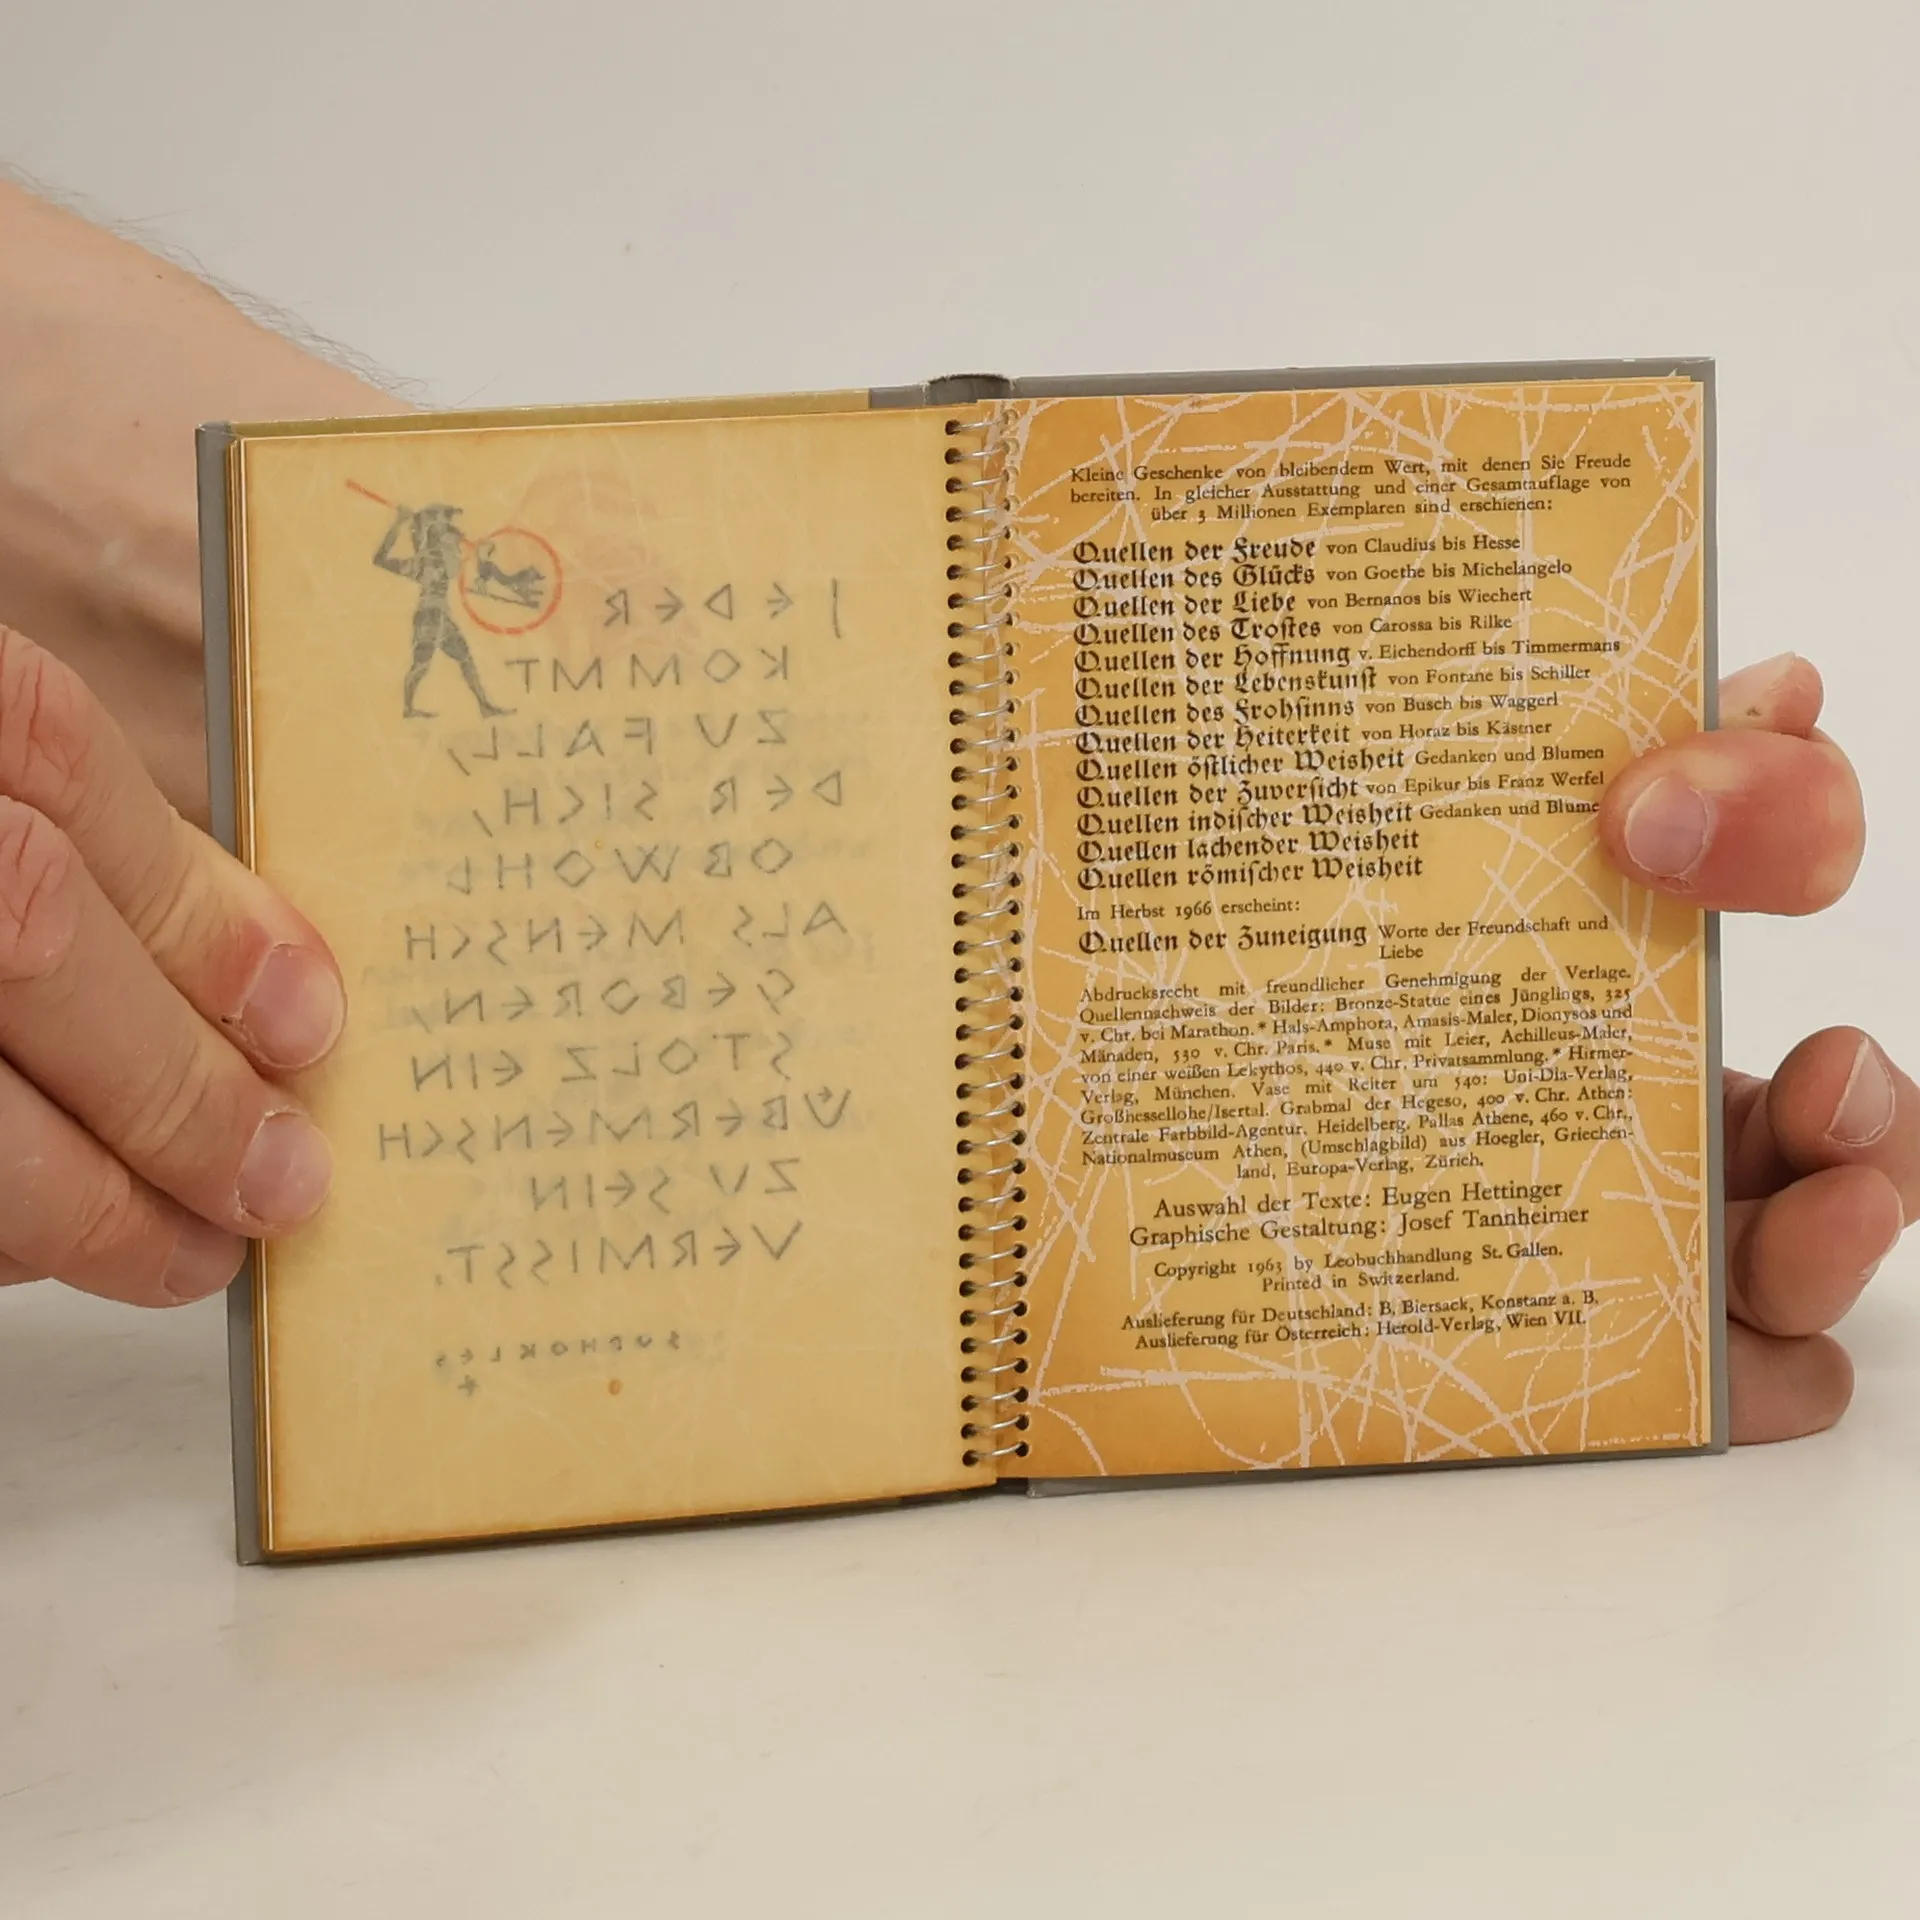 JEDER
KOMMT
ZU FALL,
DER SICH,
OBWOHL
ALS MENSCH
GEBOREN,
STOLZ EIN
ÜBERMENSCH
ZU SEIN
VERMISST.
SOPHOKLES
Kleine Geschenke von bleibendem Wert, mit denen Sie Freude
bereiten. In gleicher Ausstattung und einer Gesamtauflage von
über 3 Millionen Exemplaren sind erschienen:
Quellen der Freude von Claudius bis Hesse
Quellen des Glücks von Goethe bis Michelangelo
Quellen der Liebe von Bernanos bis Wiechert
Quellen des Trostes von Carossa bis Rilke
Quellen der Hoffnung v. Eichendorff bis Timmermans
Quellen der Lebenskunst von Fontane bis Schiller
Quellen des Frohsinns von Busch bis Waggerl
Quellen der Heiterkeit von Horaz bis Kästner
Quellen östlicher Weisheit Gedanken und Blumen
Quellen der Zuversicht von Epikur bis Franz Werfel
Quellen indischer Weisheit Gedanken und Blume
Quellen lachender Weisheit
Quellen römischer Weisheit
Im Herbst 1966 erscheint:
Quellen der Zuneigung Worte der Freundschaft und
Liebe
Abdrucksrecht mit freundlicher Genehmigung der Verlage.
Quellennachweis der Bilder: Bronze-Statue eines Jünglings, 325
v. Chr. bei Marathon.* Hals-Amphora, Amasis-Maler, Dionysos und
Mänaden, 530 v. Chr. Paris.* Muse mit Leier, Achilleus-Maler,
von einer weißen Lekythos, 440 v. Chr. Privatsammlung.* Hirmer-
Verlag, München. Vase mit Reiter um 540: Uni-Dia-Verlag,
Großhessellohe/Isertal. Grabmal der Hegeso, 400 v. Chr. Athen:
Zentrale Farbbild-Agentur, Heidelberg. Pallas Athene, 460 v. Chr.,
Nationalmuseum Athen, (Umschlagbild) aus Hoegler, Griechen-
land, Europa-Verlag, Zürich.
Auswahl der Texte: Eugen Hettinger
Graphische Gestaltung: Josef Tannheimer
Copyright 1963 by Leobuchhandlung St. Gallen.
Printed in Switzerland.
Auslieferung für Deutschland: B. Biersack, Konstanz a. B.
Auslieferung für Österreich: Herold-Verlag, Wien VII.